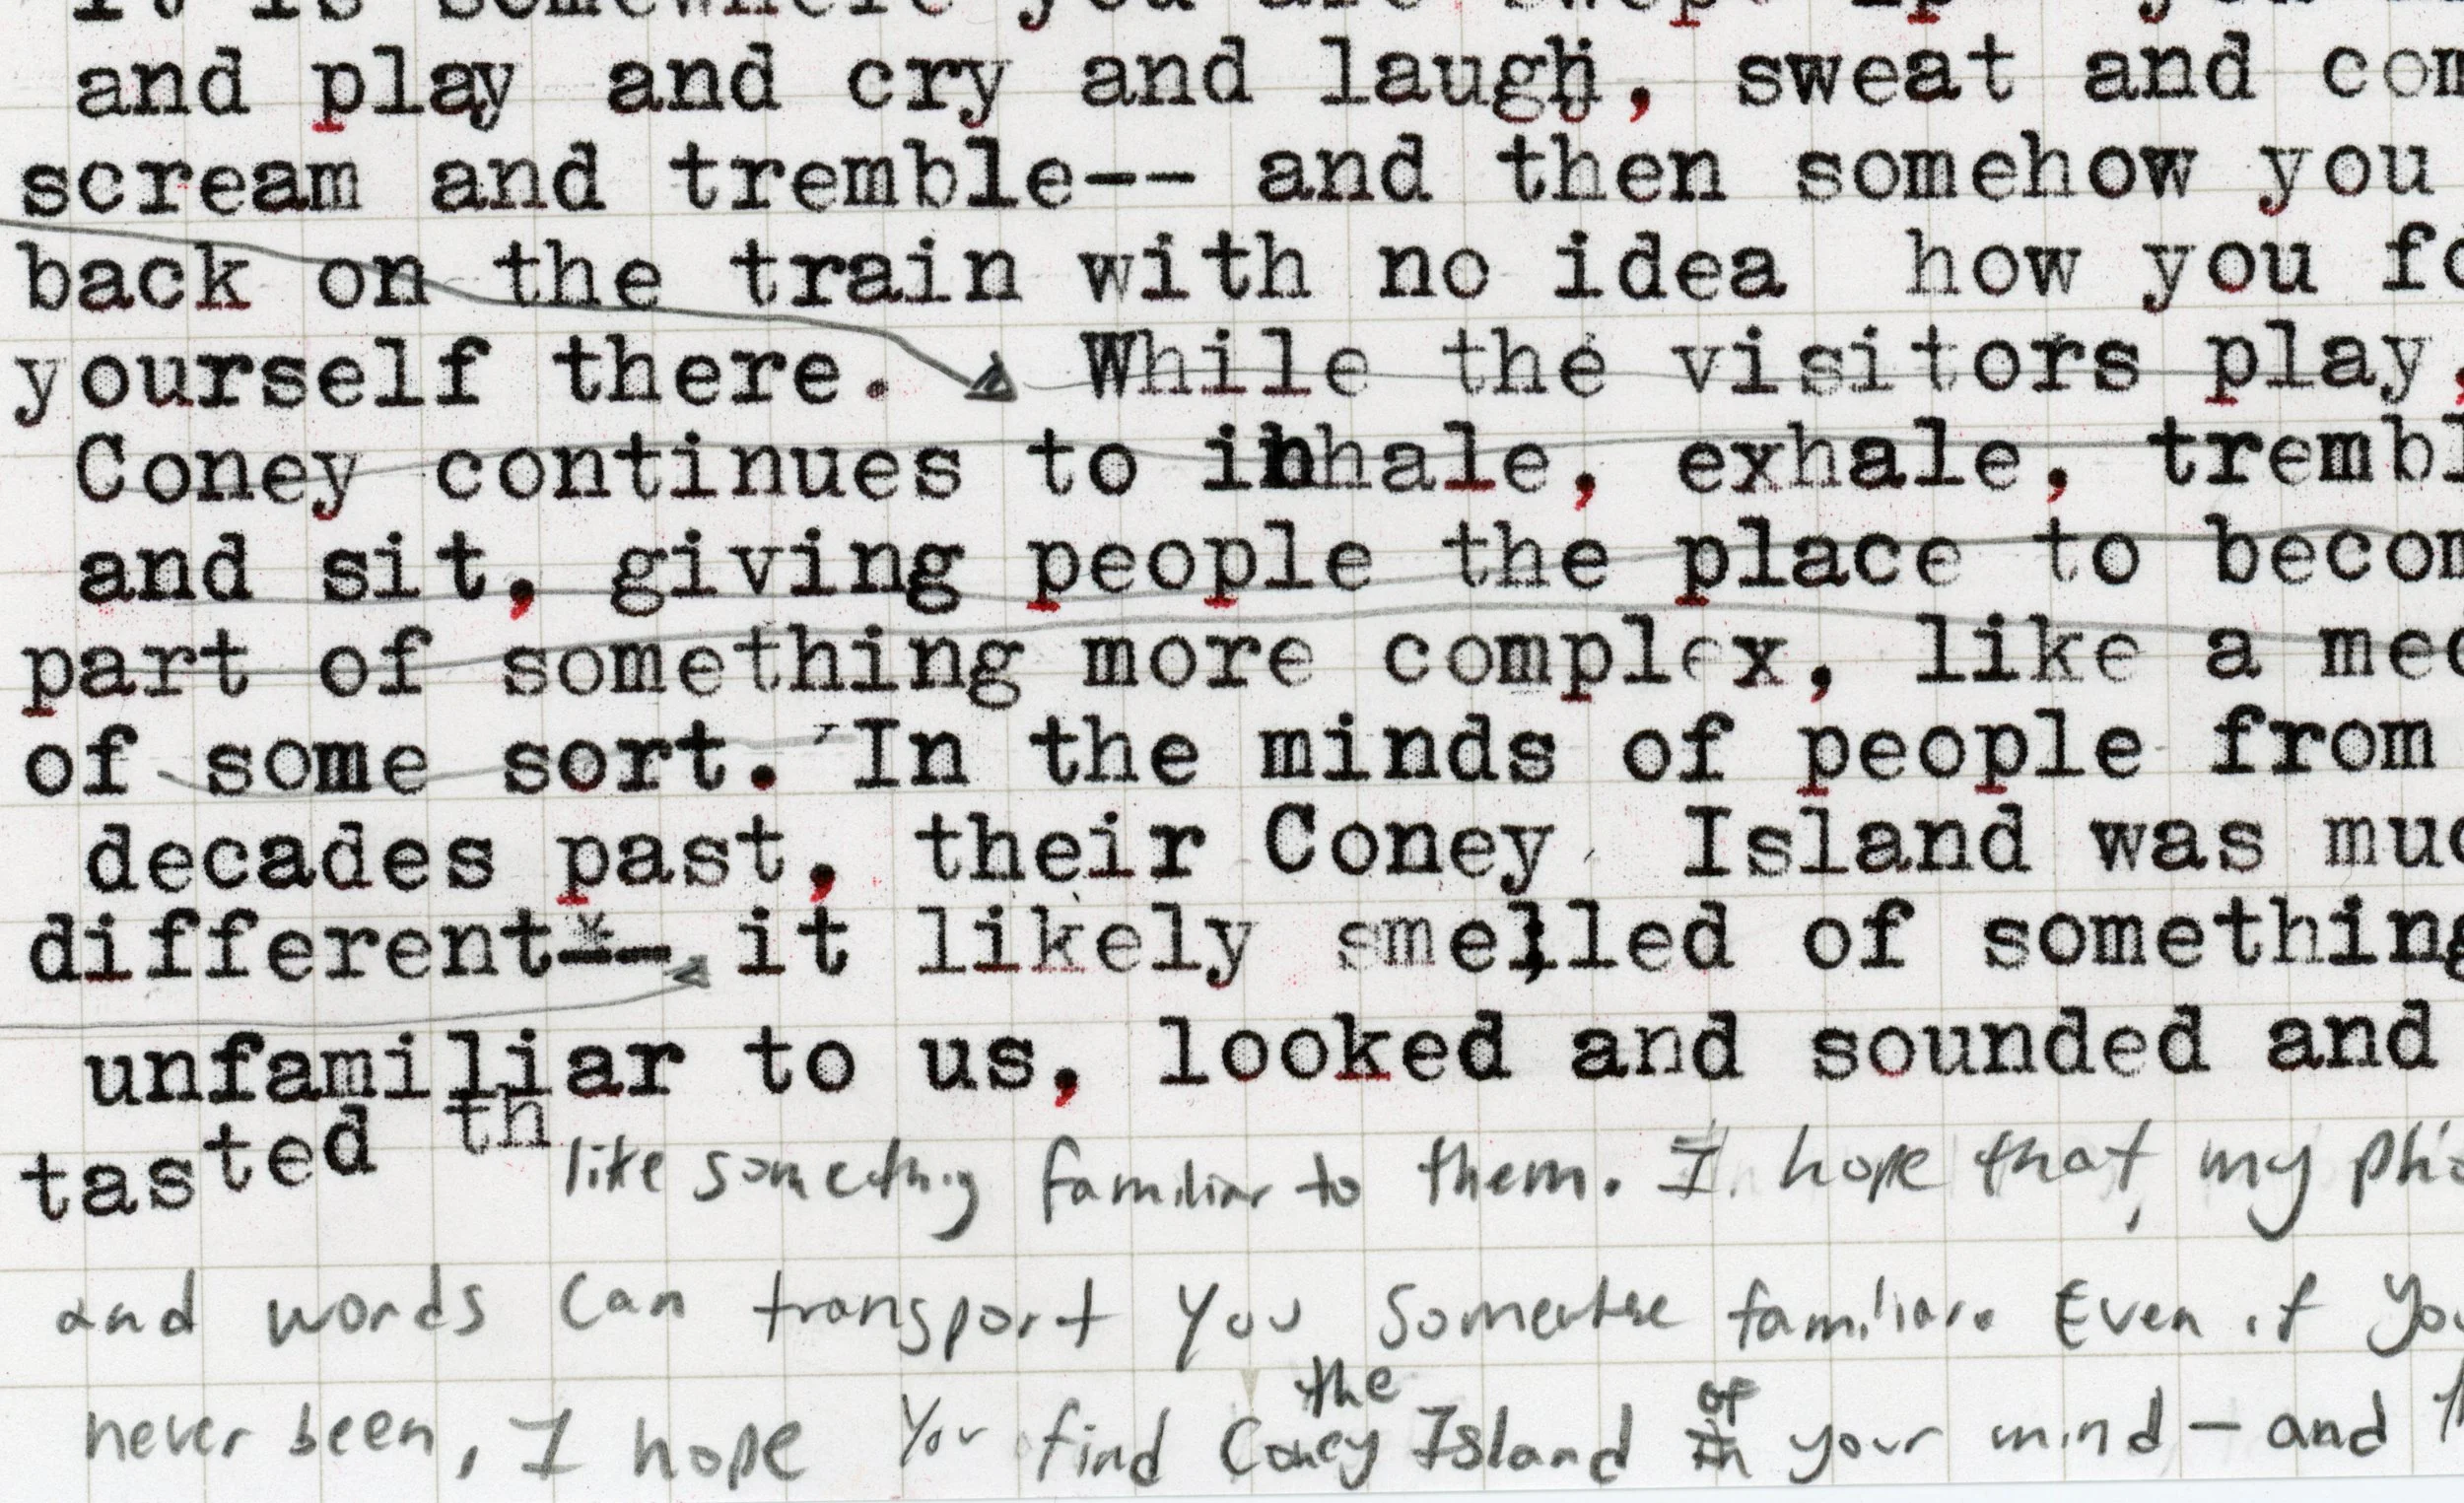 it is somewhere you are swept up you
and play and cry and laugh, sweat and com
scream and tremble-- and then somehow you
back on the train with no idea how you fo
yourself there. While the visitors play,
Coney continues to inhale, exhale, trembl
and sit, giving people the place to becom
part of something more complex, like a med
of some sort. In the minds of people from
decades past, their Coney Island was muc
different-- it likely smelled of something
unfamiliar to us, looked and sounded and
tasted th like something familiar to them. I hope that, my pho
and words can transport you somewhere familiar. Even if you
the of
never been, I hope you find Coney Island in your mind - and th